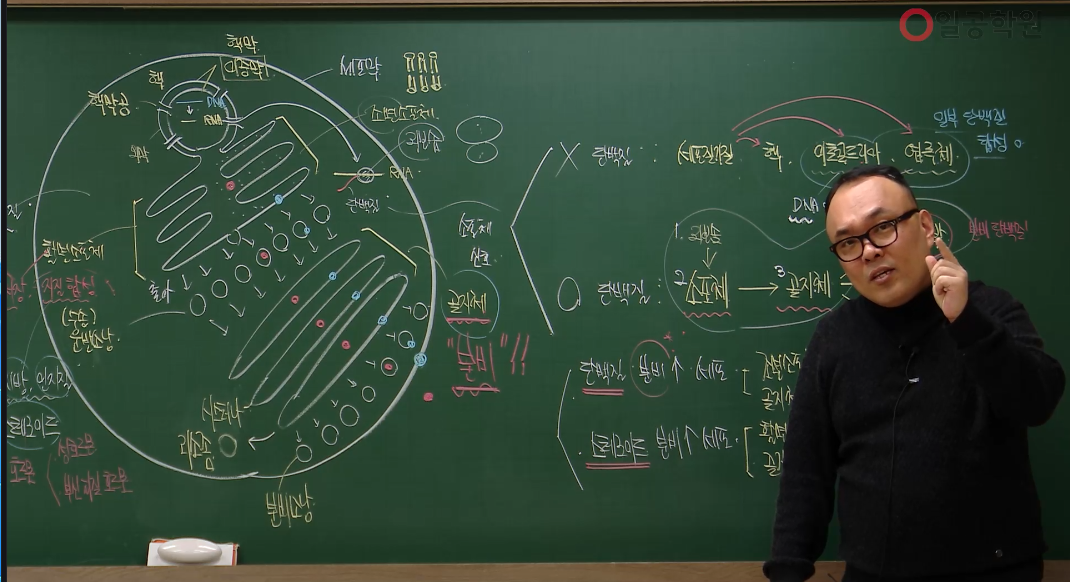 일공학원
핵막
이중막
핵
핵막공
DNA
RNA
세포막
조면소포체
리보솜
RNA
단백질
매끈소포체
지질 합성
출아
(수송)
운반소낭
소포체
골지체
"분비"!!
시스터나
리소좀
분비소낭
지방, 인지질
스테로이드
성호르몬
부신 겉질 호르몬
X 단백질 : 세포질기질 핵. 미토콘드리아 엽록체.
일부 단백질
합성 o
DNA
1. 리보솜
O 단백질 : 2 소포체 → 3 골지체
분비 단백질
단백질 분비↑ 세포
골지체
스테로이드 분비↑ 세포